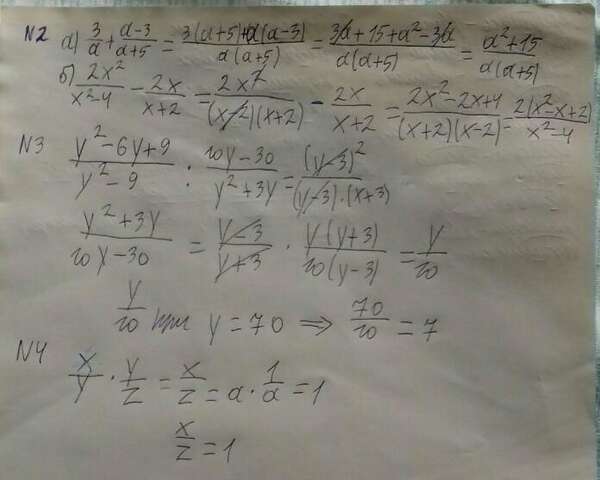 N2 а) 3/a + a-3/a+5 = 3(a+5)+a(a-3)/a(a+5) = 3a+15+a²-3a/a(a+5) = a²+15/a(a+5)
б) 2x²/x²-4 - 2x/x+2 = 2x²/(x-2)(x+2) - 2x/x+2 = 2x²-2x+4/(x+2)(x-2) = 2(x²-x+2)/x²-4
N3 y²-6y+9/y²-9 : 10y-30/y²+3y = (y-3)²/(y-3)·(x+3)
y²+3y/10y-30 = y-3/y+3 · y(y+3)/10(y-3) = y/10
y/10 при y=70 ⇒ 70/10 = 7
N4 x/y · y/z = x/z = a · 1/a = 1
x/z = 1